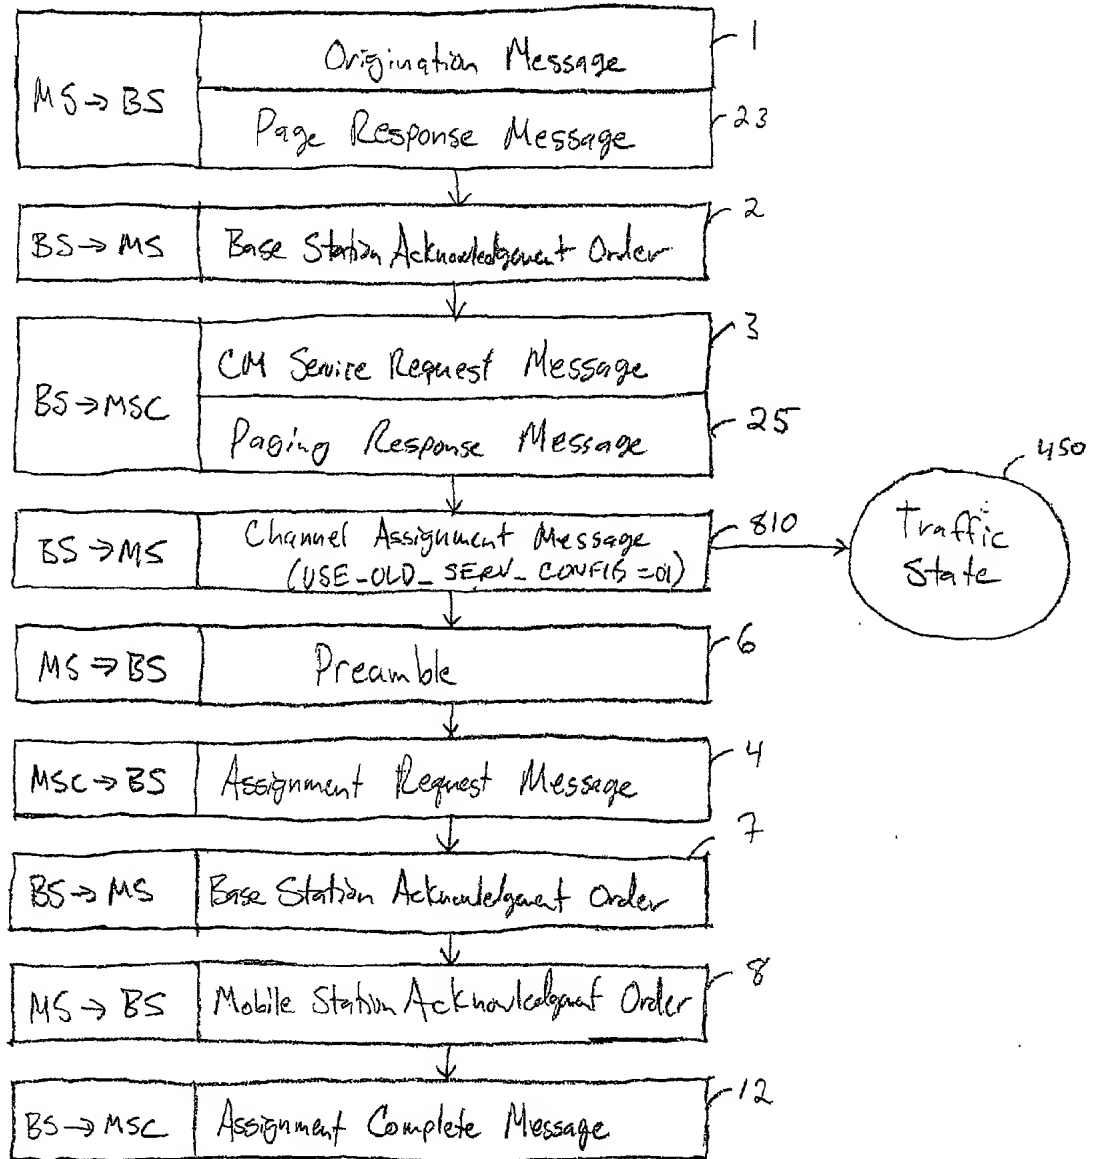 1
MS → BS
Origination Message
Page Response Message
23
2
BS → MS
Base Station Acknowledgment Order
3
BS → MSC
CM Service Request Message
Paging Response Message
25
450
Traffic
State
BS → MS
Channel Assignment Message
(USE_OLD_SERV_CONFIG = 01)
810
6
MS ⇒ BS
Preamble
4
MSC → BS
Assignment Request Message
7
BS → MS
Base Station Acknowledgment Order
8
MS → BS
Mobile Station Acknowledgment Order
12
BS → MSC
Assignment Complete Message